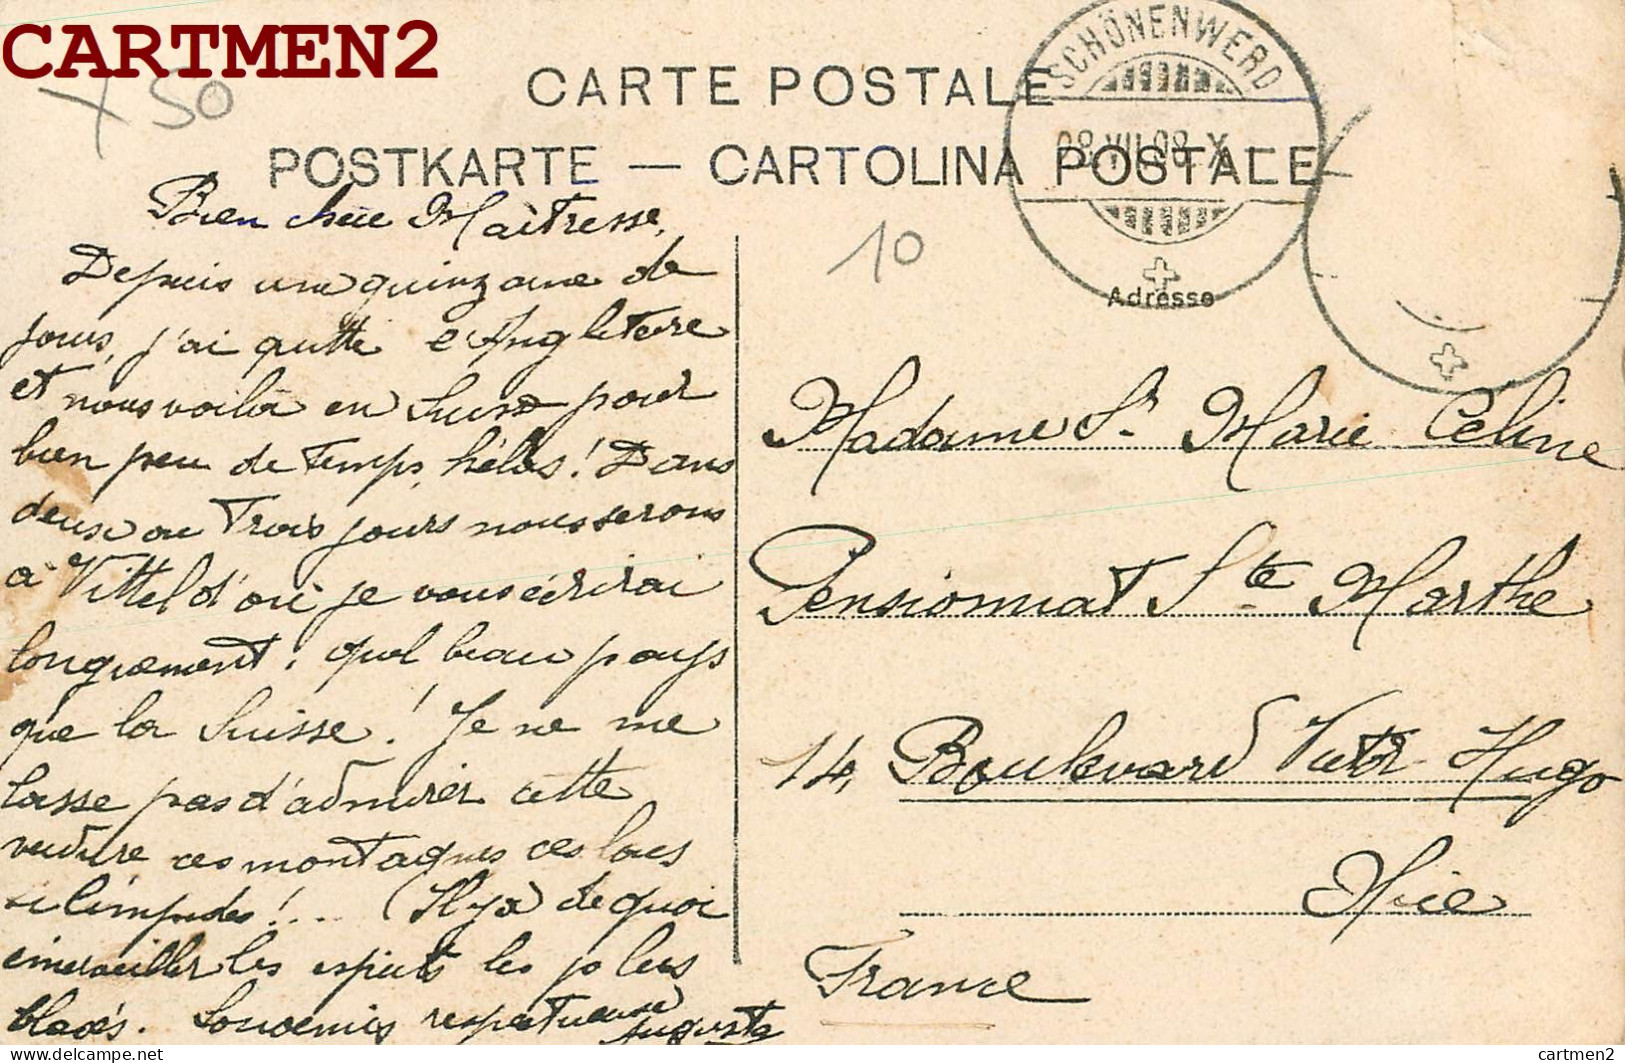 CARTMEN2
X 50
CARTE POSTALE
POSTKARTE — CARTOLINA POSTALE
SCHÖNENWERD
08.VII.08.X
10
Adresse
Bien chère Maîtresse,
Depuis une quinzaine de
jours, j'ai quitté l'Angleterre
et nous voilà en Suisse pour
bien peu de temps, hélas! Dans
deux ou trois jours nous serons
à Vittel d'où je vous écrirai
longuement. Quel beau pays
que la Suisse! Je ne me
lasse pas d'admirer cette
verdure ces montagnes ces lacs
si limpides!... (Il y a de quoi
émerveiller les esprits les plus
blasés. Souvenirs respectueux
Augusta
Madame St. Marie Céline
Pensionnat Ste Marthe
14, Boulevard Victr Hugo
Nice
France
cartmen2